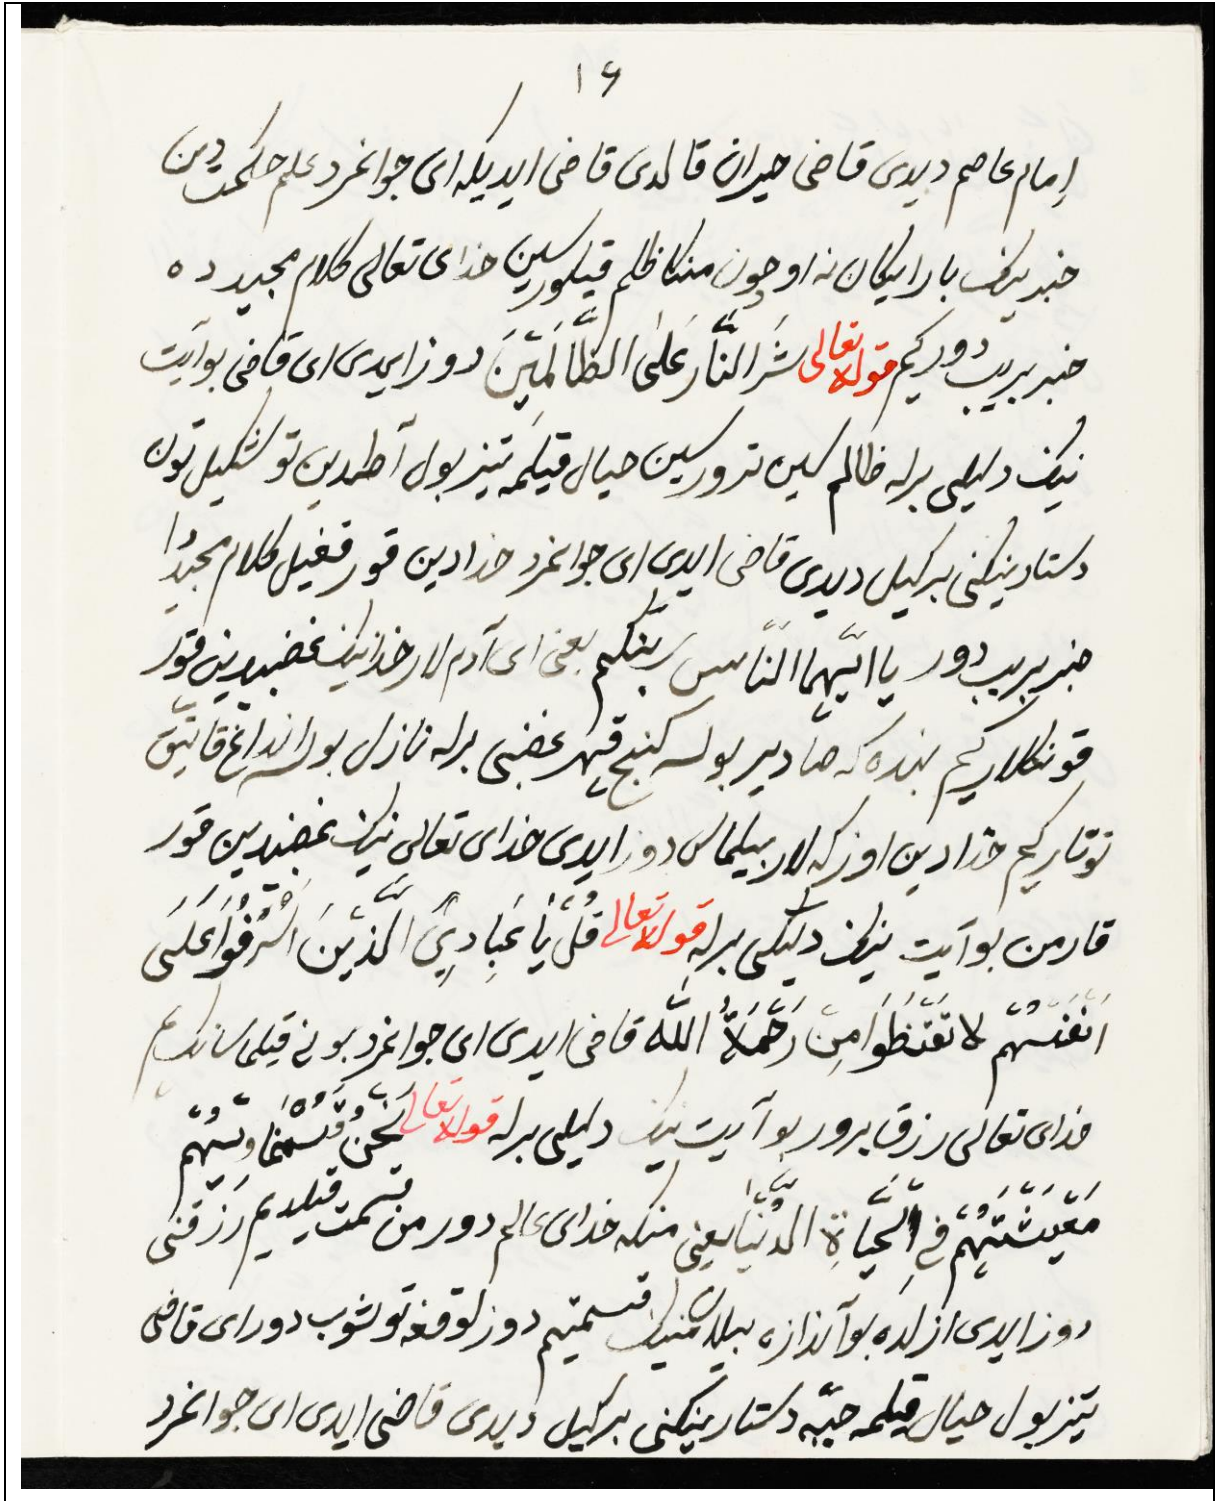 ۱۶
امام عاصم دیدی قاضی حیران قالدی قاضی ایدیکه ای جوانمرد علم حکمت دین
خبرینک بار ایکان نه اوچون منکا ظلم قیلورسین خدای تعالی کلام مجید ده
خبر بریب دور کیم قوله تعالی شَرَ النَّار عَلَی الظَّالَمِیْنَ دوز ایدی ای قاضی بو آیت
نینک دلیلی برله ظالم سین تزویرسین حیال قیلمه تیز بول آطمدین توشکیل تون
دستارینکنی برکیل دیدی قاضی ایدی ای جوانمرد خدادین قورقغیل کلام مجیددا
خبر بریب دور یا ایّها النّاس ربّکم یعنی ای آدم لار خداینک غضبیدین قور
قونکلار کیم بنده که صادیر بولسه کنج قهر غضبی برله نازل بولسه انداغ قاتیق
توتار کیم خدادین اوزکه لار بیلماس دوز ایدی خدای تعالی نینک غضبیدین قور
قارمن بو آیت نینک دلیلی برله قوله تعالی قُلْ یَا عِبَادِیَ الَّذِیْنَ اَسْرَفُوْا عَلَی
اَنْفُسِهِمْ لا تَقْنَطُوا مِنْ رَحْمَةِ اللّه قاضی ایدی ای جوانمرد بو نی قیلسانک هم
خدای تعالی رزق برور بو آیت نینک دلیلی برله قوله تعالی نَحْنُ قَسَمْنَا بَیْنَهُمْ
مَعِیْشَتَهُمْ فِی الْحَیَاةِ الدُّنْیَا یعنی منکه خدای عالم دور من قسمت قیلدیم رزقنی
دوز ایدی ازلده بو آندازه بیلان منینک قسمتیم دوزلوقغه توشوب دور ای قاضی
تیز بول حیال قیلمه جبّه دستارینکنی برکیل دیدی قاضی ایدی ای جوانمرد